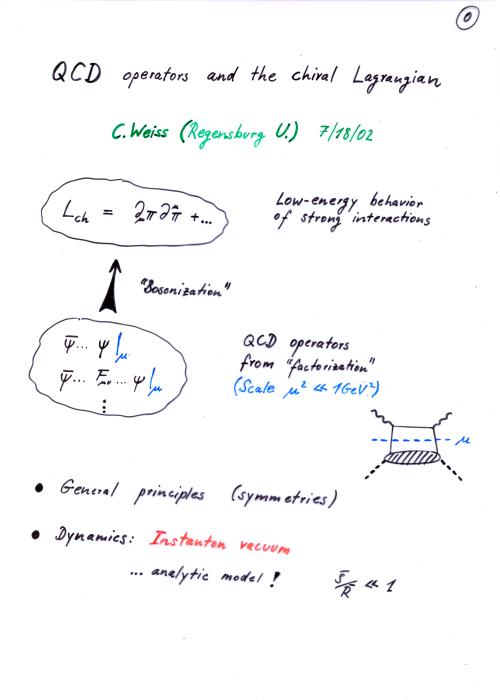 0
QCD operators and the chiral Lagrangian
C. Weiss (Regensburg U.) 7/18/02
L_ch = ∂_μ π ∂^μ π + ...
Low-energy behavior
of strong interactions
"Bosonization"
ψ̄ ... ψ |_μ
ψ̄ ... F_μν ... ψ |_μ
⋮
QCD operators
from "factorization"
(Scale μ² ≪ 1 GeV²)
μ
• General principles (symmetries)
• Dynamics: Instanton vacuum
... analytic model !
ρ̄/R̄ ≪ 1